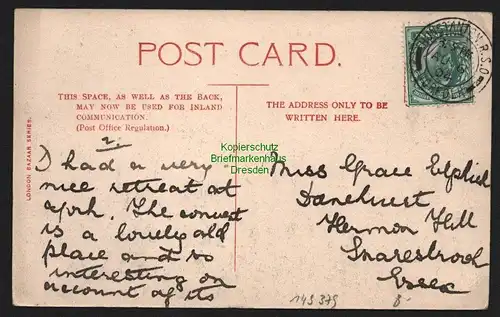 POST CARD.
THIS SPACE, AS WELL AS THE BACK,
MAY NOW BE USED FOR INLAND
COMMUNICATION.
(Post Office Regulation.)
THE ADDRESS ONLY TO BE
WRITTEN HERE.
LONDON BAZAAR SERIES.
Kopierschutz
Briefmarkenhaus
Dresden
2.
I had a very
nice retreat at
. The convent
is a lovely old
place and so
interesting on
account of its
Miss Grace
Danehurst
Hermon Hill
Snaresbrook
Essex
143 379
R.S.O.